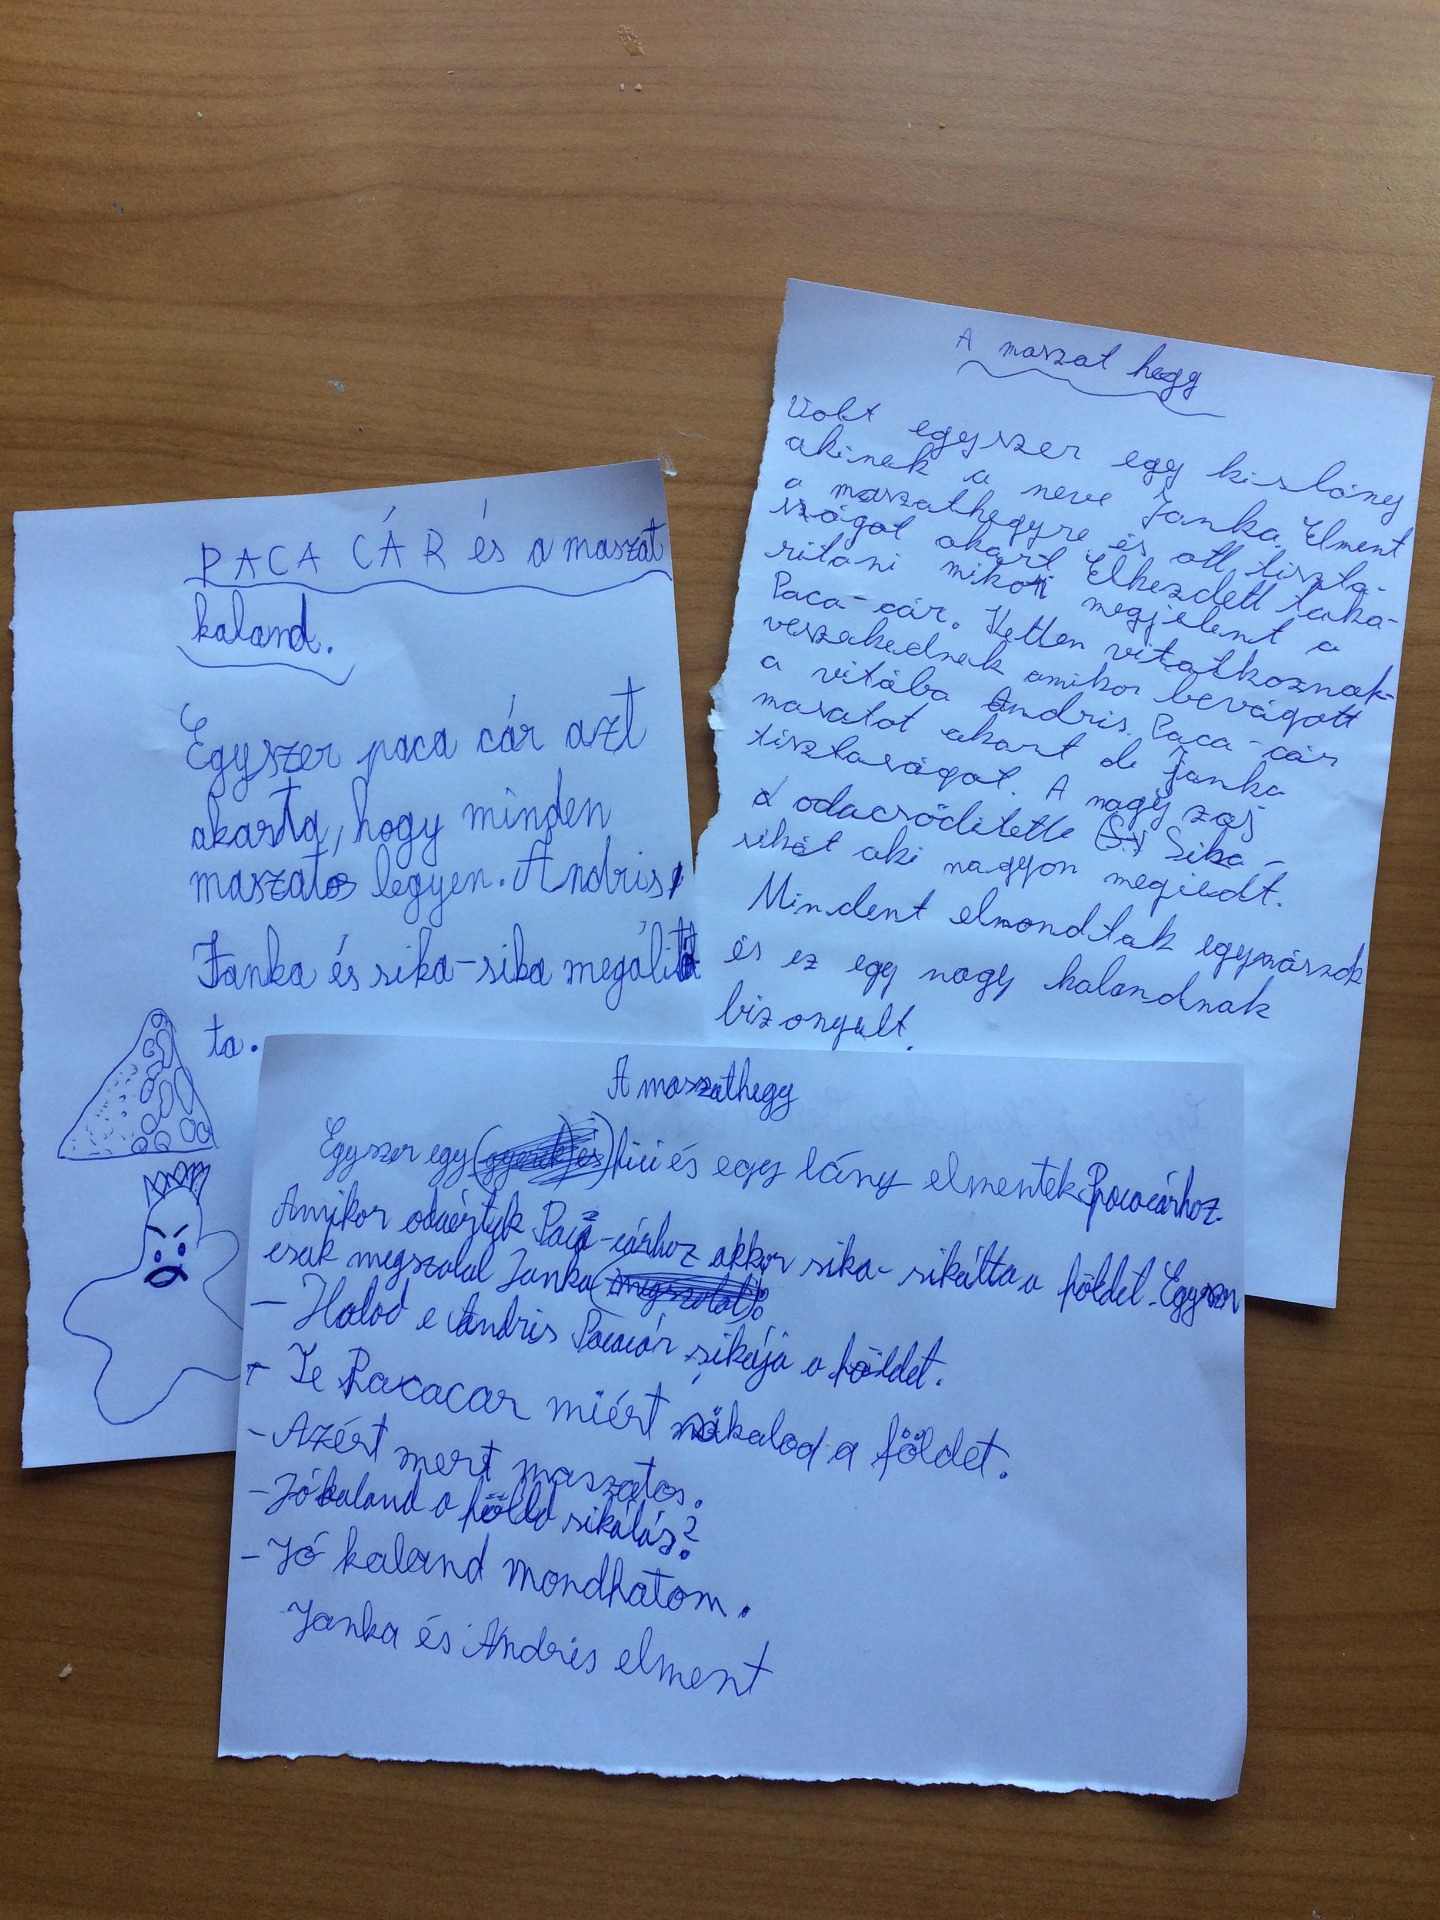 PACA CÁR és a maszat
kaland.
Egyszer paca cár azt
akarta, hogy minden
maszatos legyen. Andris,
Janka és sika-sika megálít
ta.
A maszat hegy
Volt egyszer egy kislány
akinek a neve Janka. Elment
a maszathegyre és ott tiszta-
ságot akart. Elkezdett taka-
ritani mikor megjelent a
Paca-cár. Ketten vitatkoznak-
veszekednek amikor bevágott
a vitába Andris. Paca-cár
masatot akart de Janka
tisztaságot. A nagy zaj
odacsöditette Sika-
sikát aki nagyon megiedt.
Mindent elmondtak egymásnak
és ez egy nagy kalandnak
bizonyult.
A maszathegy
Egyszer egy fiú és egy lány elmentek Pacacárhoz.
Amikor odaértek Paca-cárhoz akkor sika-sikálta a földet. Egyszer
csak megszolal Janka:
– Halod e Andris Pacacár sikája a földet.
– Te Pacacar miért sikalod a földet.
– Azért mert maszatos.
– Jó kaland a föld sikálás?
– Jó kaland mondhatom.
Janka és Andris elment